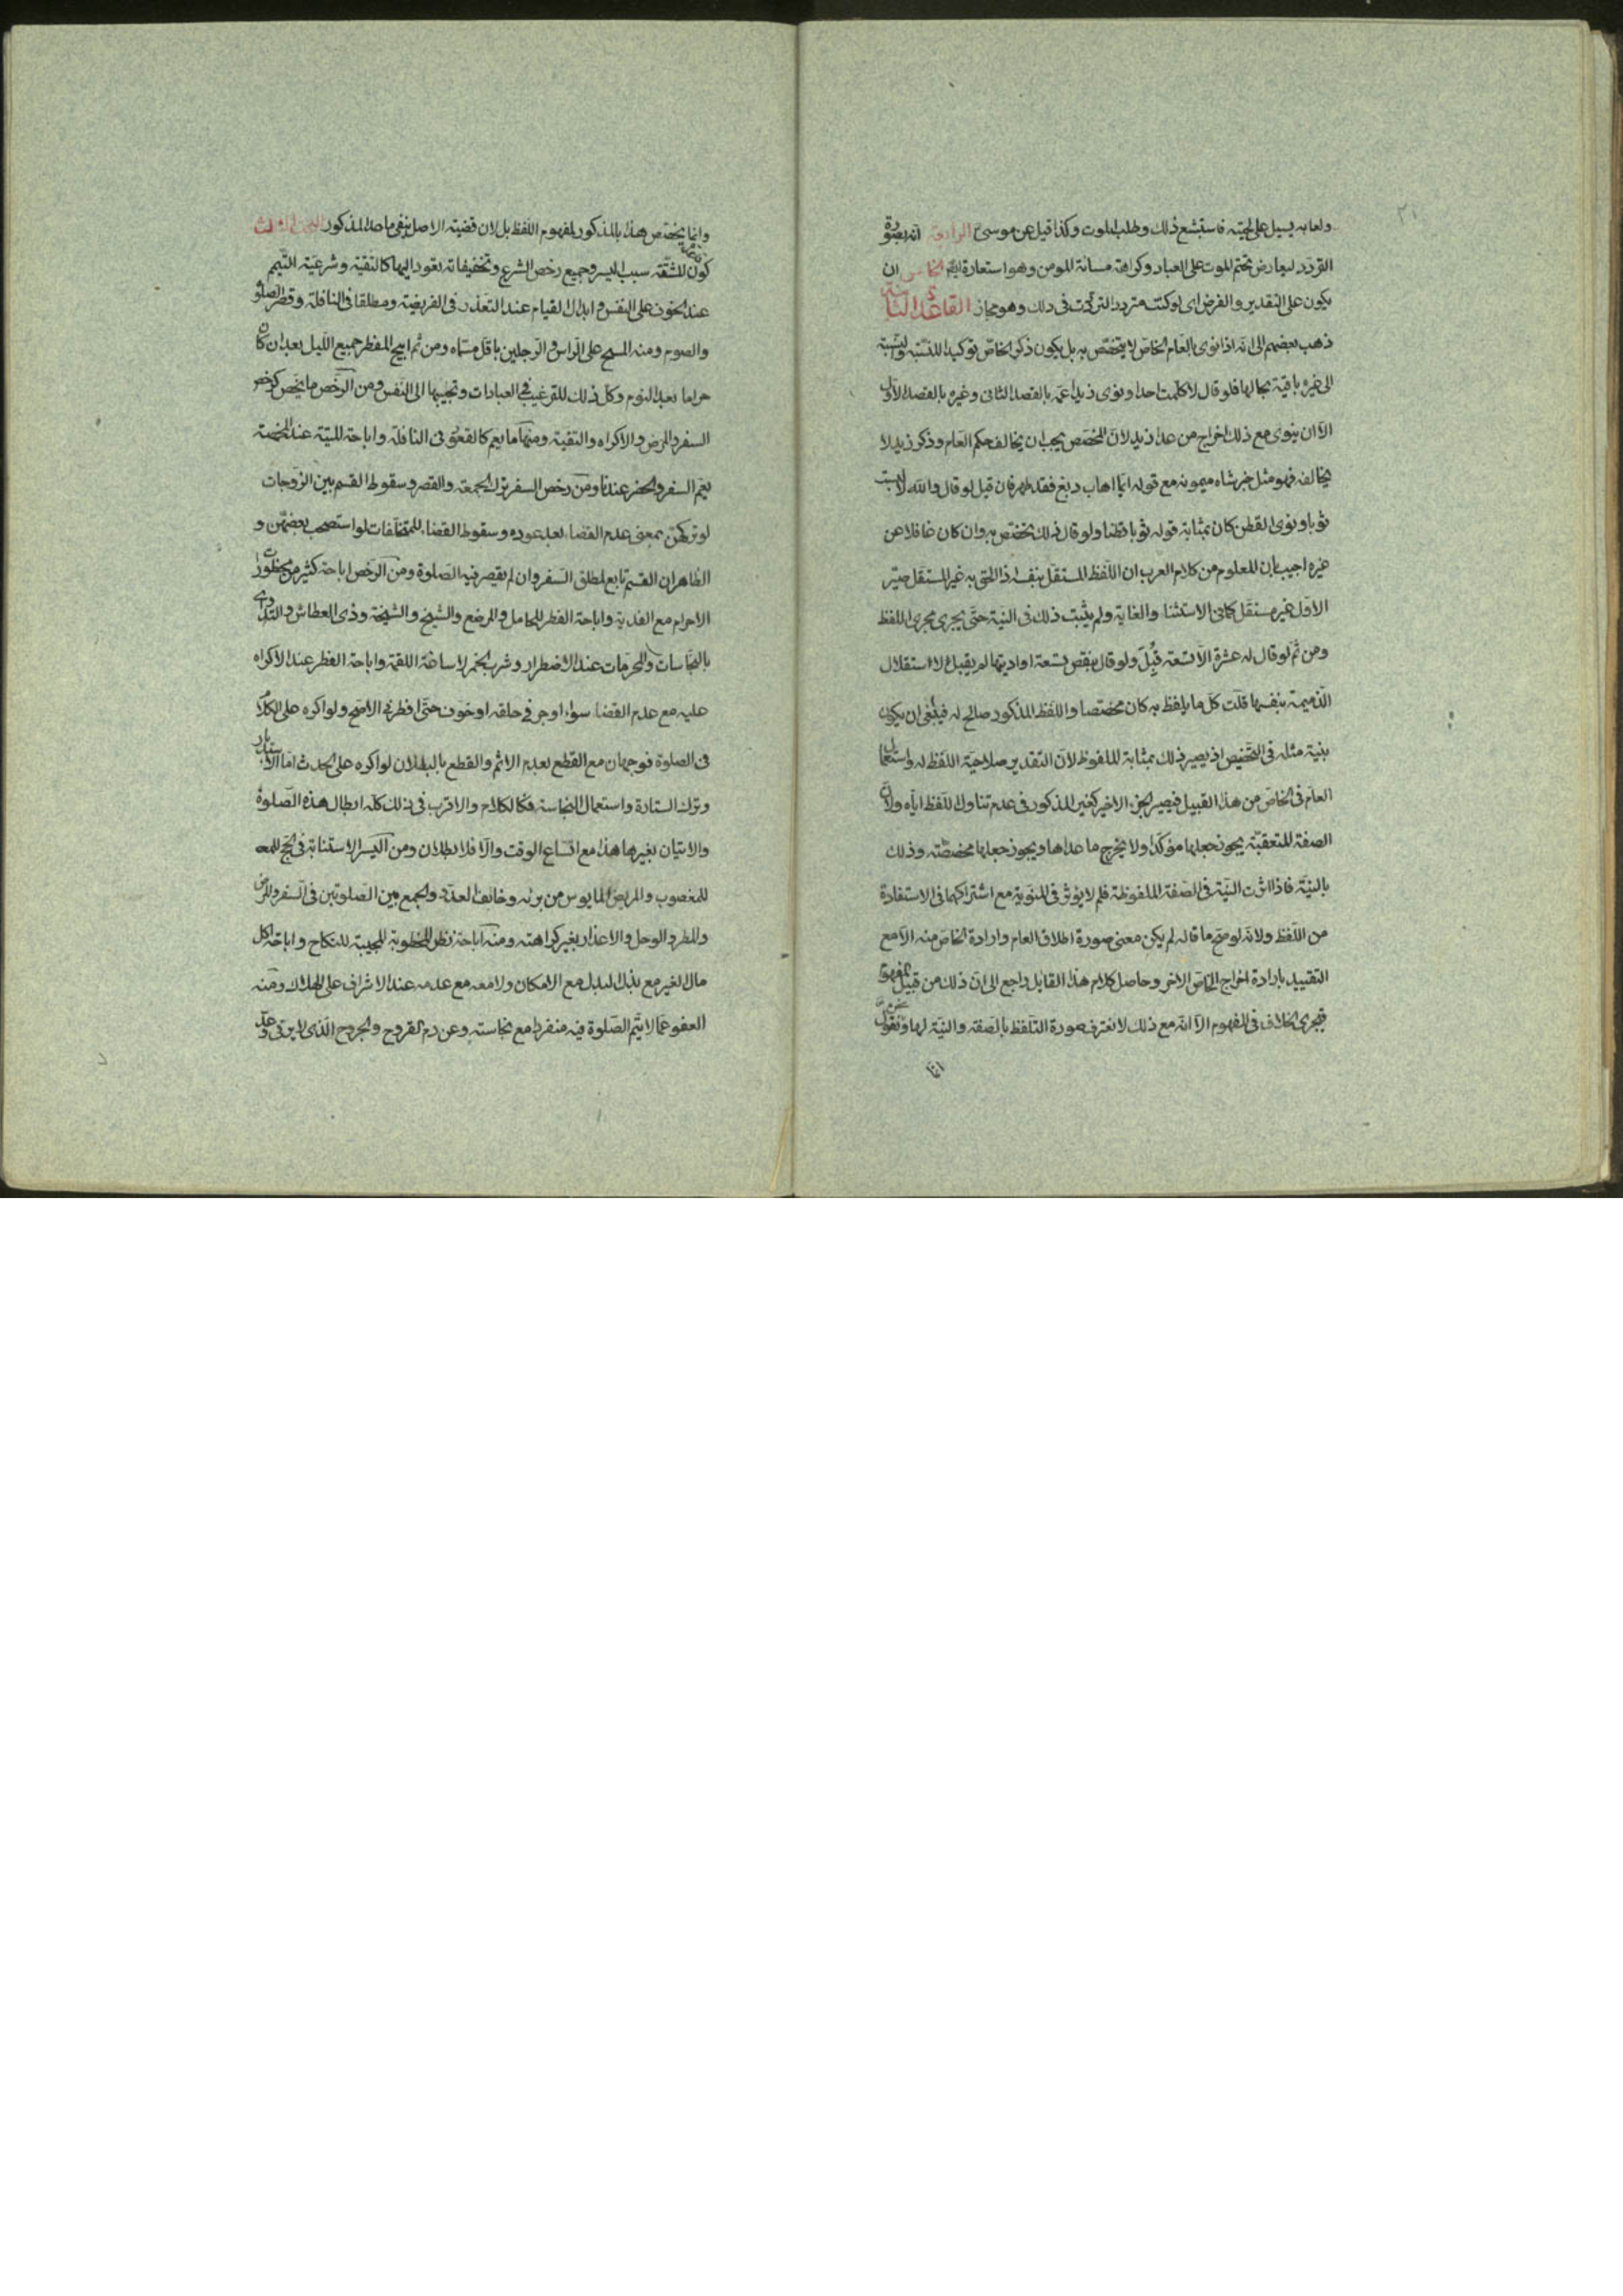 ولعابه يسيل على لحيته فاستبشع ذلك وطلب الموت وكذا قيل عن موسى الرابع انه بصورة
التردد لتعارض تحتم الموت على العباد وكراهة مسائة المومن وهو استعارة ايضا الخامس ان
يكون على التقدير والفرض اى لو كنت مترددا لترددت فى ذلك وهو مجاز القاعدة
ذهب بعضهم الى انه اذا نوى بالعام الخاص لا يتخصص به بل يكون ذكر الخاص توكيدا للنسبته والنسبة
الى غيره باقية بحالها فلو قال لا كلمت احدا ونوى زيدا عمه بالقصد الثانى وغيره بالقصد الاول
الا ان ينوى مع ذلك اخراج من عدا زيد لان المخصص يجب ان يخالف حكم العام وذكر زيد لا
يخالفه فهو مثل خبر شاه ميمونه مع قوله ايما اهاب دبغ فقد طهر فان قيل لو قال والله لا لبست
ثوبا ونوى القطن كان بمثابة قوله ثوبا قطنا ولو قال ذلك يختص به وان كان غافلا عن
غيره اجيب بان المعلوم من كلام العرب ان اللفظ المستقل بنفسه اذا لحق به غير المستقل صير
الاول غير مستقل كما فى الاستثناء والغاية ولم يثبت ذلك فى النية حتى يجرى مجرى اللفظ
ومن ثم لو قال له عشرة الا تسعة قبل ولو قال ينقص تسعة او اديتها لم يقبل لاستقلال
الذميمة بنفسها قلت كل ما يلفظ به كان مخصصا واللفظ المذكور صالح له فينبغى ان يكون
بنية مثله فى التخصيص اذ يصير ذلك بمثابة الملفوظ لان التقدير صلاحية اللفظ له واستعمال
العام فى الخاص من هذا القبيل فيصير الجزء الاخير كغير المذكور فى عدم تناول اللفظ اياه ولان
الصفة المتعقبة يجوز جعلها مؤكدا ولا يخرج ما عداها ويجوز جعلها مخصصته وذلك
بالنية فاذا اثرت النية فى الصفة الملفوظة فلم لا يوثر فى المنوية مع اشتراكهما فى الاستفادة
من اللفظ ولانه لو صح ما قاله لم يكن معنى صورة اطلاق العام وارادة الخاص منه الا مع
التقييد بارادة اخراج الخاص الاخر وحاصل كلام هذا القايل راجع الى ان ذلك من قبيل المفهوم
فيجرى الخلاف فى المفهوم الا انه مع ذلك لا نعترف بصورة التلفظ بالصفة والنية لها ونحن نقول
وانما يختص هذا بالمذكور لا لمفهوم اللفظ بل لان قضية الاصل ينفى ما عدا المذكور الثالث
كون المشقة سبب اليسر وجميع رخص الشرع وتخفيفاته يعود اليها كالتقية وشرعية التيمم
عند الخوف على النفس وابدال القيام عند التعذر فى الفريضة ومطلقا فى النافلة وقصر الصلوة
والصوم ومنه المسح على الراس والرجلين باقل مسماه ومن ثم ابيح المفطر جميع الليل بعد ان كان
حراما بعد النوم وكل ذلك للترغيب فى العبادات وتحبيبها الى النفس ومن الرخص ما يخص كرخص
السفر والمرض والاكراه والتقية ومنها ما يعم كالقعود فى النافلة واباحة الميتة عند المخمصة
يعم السفر والحضر عندنا ومن رخص السفر ترك الجمعة والقصر وسقوط القسم بين الزوجات
لو تركهن بمعنى عدم القضاء بعد عوده وسقوط القضاء للمتخلفات لو استصحب بعضهن و
الظاهر ان القسم تابع لمطلق السفر وان لم يقصر فيه الصلوة ومن الرخص اباحة كثير من محظورات
الاحرام مع الفدية واباحة الفطر للحامل والمرضع والشيخ والشيخة وذى العطاش والتداوى
بالنجاسات والمحرمات عند الاضطرار وشرب الخمر لاساغة اللقمة واباحة الفطر عند الاكراه
عليه مع عدم القضاء سواء اوجر فى حلقه او خوف حتى افطر فى الاصح ولو اكره على الكلام
فى الصلوة فوجهان مع القطع بعدم الاثم والقطع بالبطلان لو اكره على الحدث اما الاستدبار
وترك الستارة واستعمال النجاسة فكالكلام والاقرب فى ذلك كله ابطال هذه الصلوة
والاتيان بغيرها هذا مع اتساع الوقت والا فلا بطلان ومن اليسر الاستنابة فى الحج
للمعضوب والمريض المايوس من برئه وخائف العدو والجمع بين الصلوتين فى السفر والمرض
والمطر والوحل والاعذار بغير كراهته ومنه اباحة نظر المخطوبة المجيبة للنكاح واباحة اكل
مال الغير مع بذل البدل مع الامكان ولا معه مع عدمه عند الاشراف على الهلاك ومنه
العفو عما لا يتم الصلوة فيه منفردا مع نجاسته وعن دم القروح والجروح الذى لا يرقى